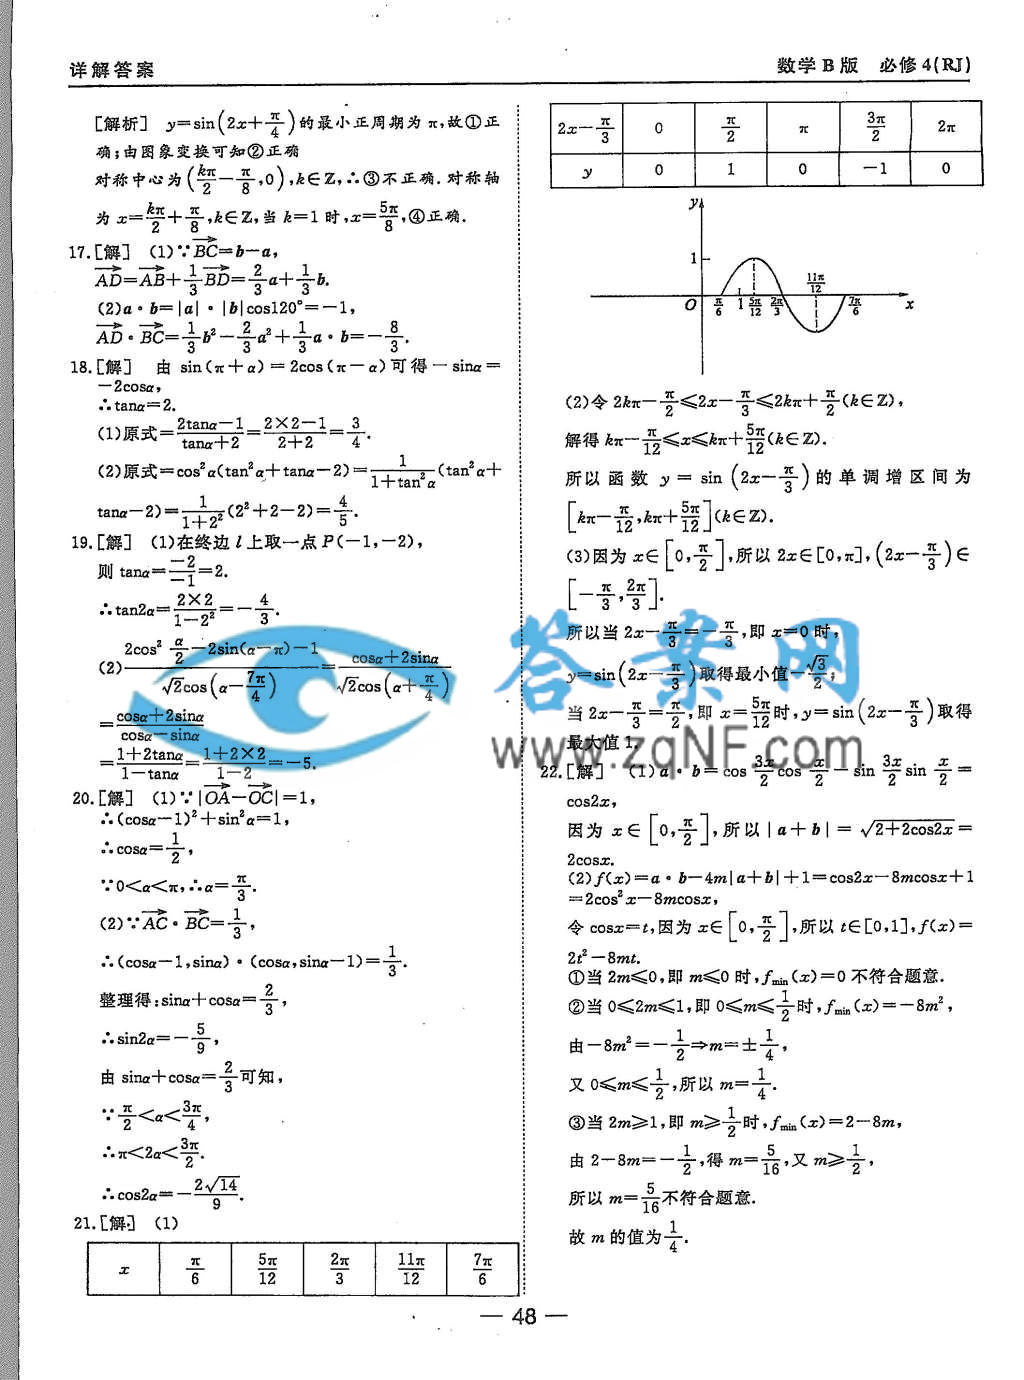 详解答案
数学B版 必修4(RJ)
[解析] y=sin(2x+π/4)的最小正周期为π,故①正
确;由图象变换可知②正确
对称中心为(kπ/2-π/8,0),k∈Z,∴③不正确.对称轴
为x=kπ/2+π/8,k∈Z,当k=1时,x=5π/8,④正确.
17.[解] (1)∵BC→=b-a,
AD→=AB→+1/3BD→=2/3a+1/3b.
(2)a·b=|a|·|b|cos120°=-1,
AD→·BC→=1/3b²-2/3a²+1/3a·b=-8/3.
18.[解] 由 sin(π+α)=2cos(π-α)可得-sinα=
-2cosα,
∴tanα=2.
(1)原式=(2tanα-1)/(tanα+2)=(2×2-1)/(2+2)=3/4.
(2)原式=cos²α(tan²α+tanα-2)=1/(1+tan²α)(tan²α+
tanα-2)=1/(1+2²)(2²+2-2)=4/5.
19.[解] (1)在终边l上取一点P(-1,-2),
则tanα=-2/-1=2.
∴tan2α=(2×2)/(1-2²)=-4/3.
(2)(2cos²α/2-2sin(α-π)-1)/(√2cos(α-7π/4))=(cosα+2sinα)/(√2cos(α+π/4))
=(cosα+2sinα)/(cosα-sinα)
=(1+2tanα)/(1-tanα)=(1+2×2)/(1-2)=-5.
20.[解] (1)∵|OA→-OC→|=1,
∴(cosα-1)²+sin²α=1,
∴cosα=1/2,
∵0<α<π,∴α=π/3.
(2)∵AC→·BC→=1/3,
∴(cosα-1,sinα)·(cosα,sinα-1)=1/3.
整理得:sinα+cosα=2/3,
∴sin2α=-5/9,
由 sinα+cosα=2/3可知,
∵π/2<α<3π/4,
∴π<2α<3π/2.
∴cos2α=-2√14/9.
21.[解] (1)
x π/6 5π/12 2π/3 11π/12 7π/6
2x-π/3 0 π/2 π 3π/2 2π
y 0 1 0 -1 0
y
1
11π/12
O π/6 1 5π/12 2π/3 7π/6 x
(2)令2kπ-π/2≤2x-π/3≤2kπ+π/2(k∈Z),
解得kπ-π/12≤x≤kπ+5π/12(k∈Z).
所以函数 y=sin(2x-π/3)的单调增区间为
[kπ-π/12,kπ+5π/12](k∈Z).
(3)因为x∈[0,π/2],所以2x∈[0,π],(2x-π/3)∈
[-π/3,2π/3].
所以当2x-π/3=-π/3,即x=0时,
y=sin(2x-π/3)取得最小值-√3/2;
当2x-π/3=π/2,即x=5π/12时,y=sin(2x-π/3)取得
最大值1.
22.[解] (1)a·b=cos3x/2cosx/2-sin3x/2sinx/2=
cos2x,
因为x∈[0,π/2],所以|a+b|=√2+2cos2x=
2cosx.
(2)f(x)=a·b-4m|a+b|+1=cos2x-8mcosx+1
=2cos²x-8mcosx,
令cosx=t,因为x∈[0,π/2],所以t∈[0,1],f(x)=
2t²-8mt.
①当2m≤0,即m≤0时,fmin(x)=0不符合题意.
②当0≤2m≤1,即0≤m≤1/2时,fmin(x)=-8m²,
由-8m²=-1/2⇒m=±1/4,
又0≤m≤1/2,所以m=1/4.
③当2m≥1,即m≥1/2时,fmin(x)=2-8m,
由2-8m=-1/2,得m=5/16,又m≥1/2,
所以m=5/16不符合题意.
故m的值为1/4.
— 48 —
答案网
www.zqNF.com